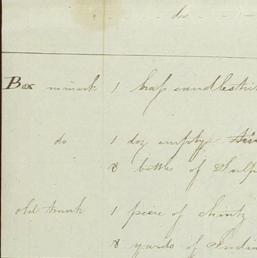 do
Box no mark 1 brass candlestic
do 1 doz empty
8 bottles of Sulp
old trunk 1 piece of chintz
8 yards of India